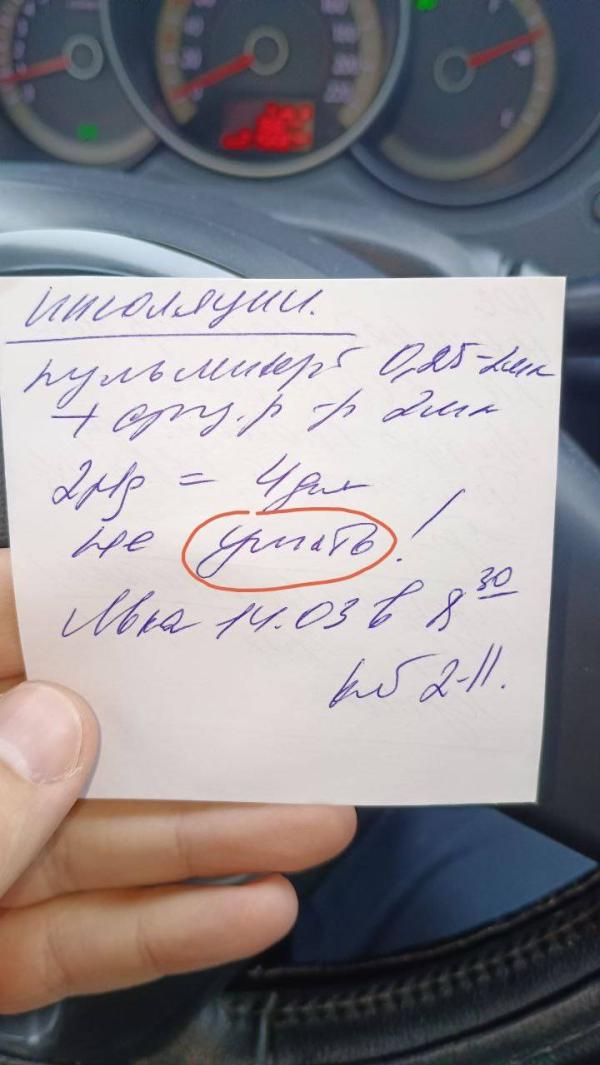 Ингаляции.
пульмикорт 0,25-2мл
+ физ. р-р 2мл
2р/д = 4дня
не урчать!
Явка 14.03 в 8 30
каб 2-11.
220